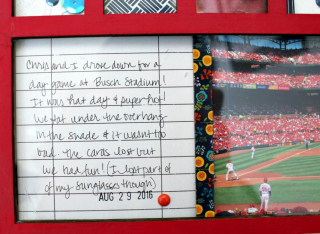 Chris and I drove down for a
day game at Busch Stadium!
It was hat day & super hot!
We sat under the overhang
in the shade & it wasn't too
bad. The cards lost but
we had fun! (I lost part of
of my sunglasses though)
AUG 29 2016